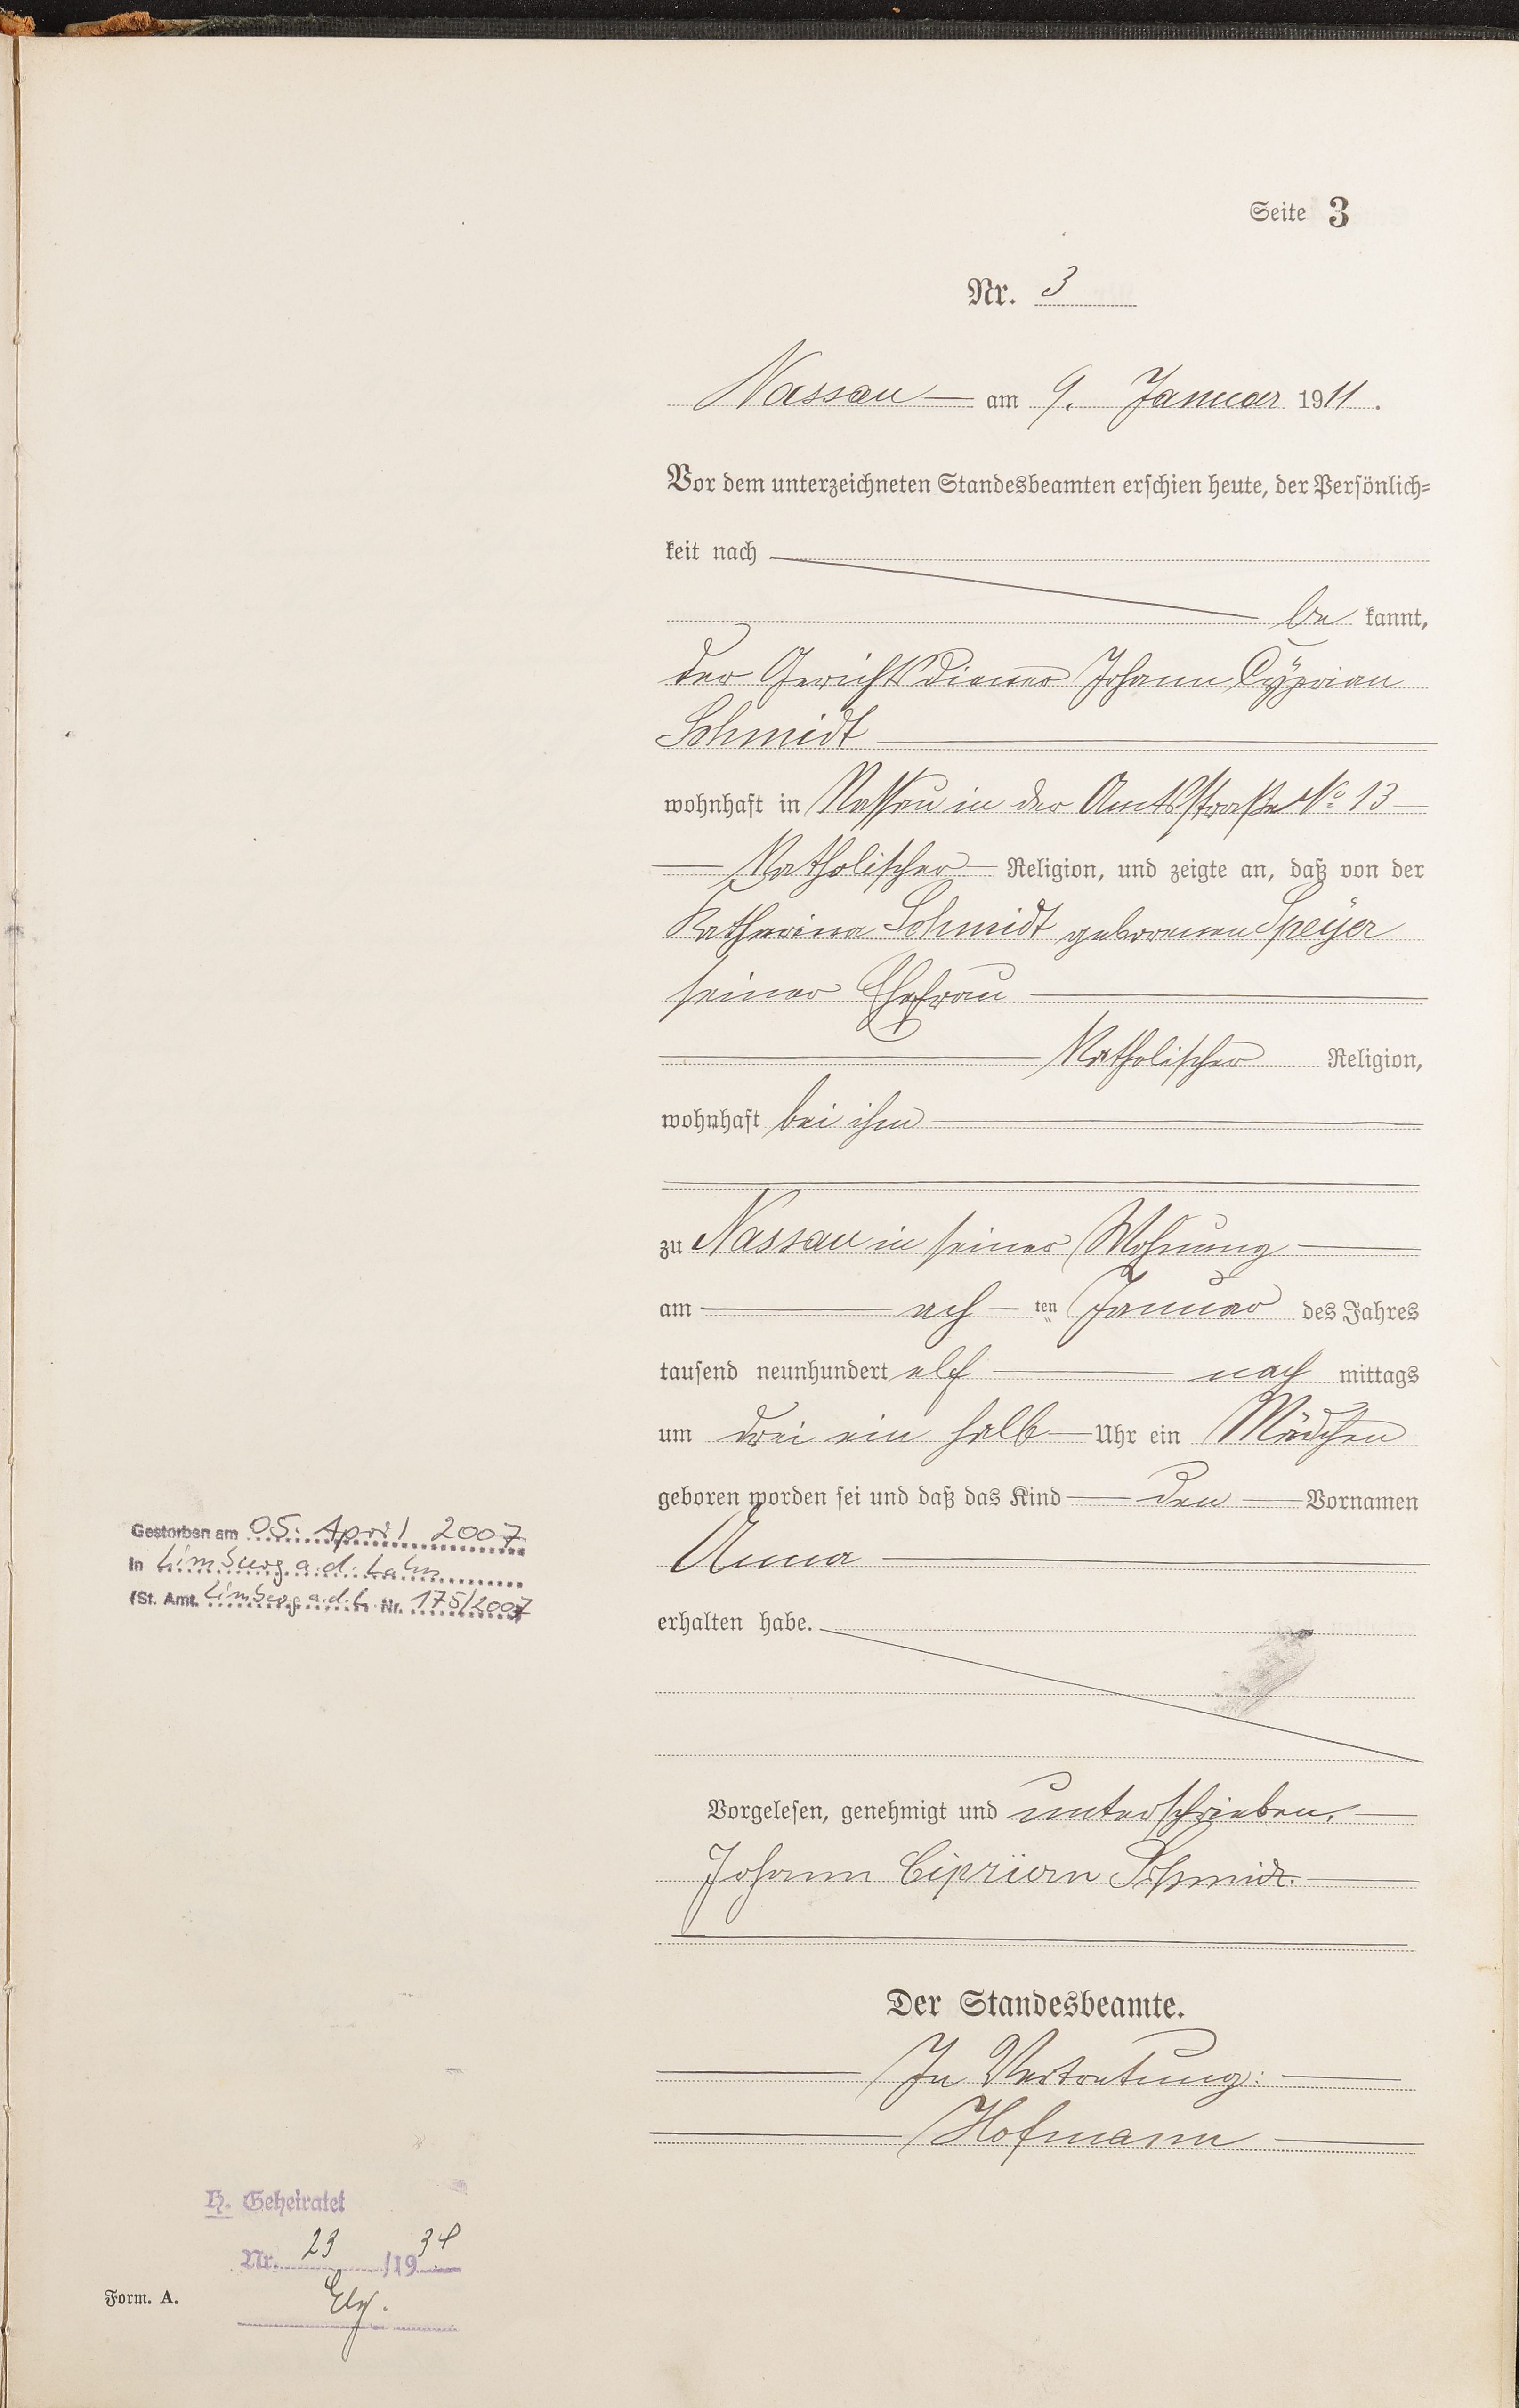 Seite 3
Nr. 3
Nassau am 9. Januar 1911.
Vor dem unterzeichneten Standesbeamten erschien heute, der Persönlich-
keit nach
be kannt,
der Gerichtsdiener Johann Cyprian
Schmidt
wohnhaft in Nassau in der Amtsstraße No. 13
Katholischer Religion, und zeigte an, daß von der
Katharina Schmidt geborenen Speyer
seiner Ehefrau
Katholischer Religion,
wohnhaft bei ihm
zu Nassau in seiner Wohnung
am ach ten Januar des Jahres
tausend neunhundert elf nach mittags
um drei ein halb Uhr ein Mädchen
geboren worden sei und daß das Kind den Vornamen
Anna
erhalten habe.
Vorgelesen, genehmigt und unterschrieben.
Johann Ciprian Schmidt.
Der Standesbeamte.
In Vertretung:
Hofmann
Gestorben am 05. April 2007
in Limburg a.d. Lahn
(St. Amt. Limburg a.d.L. Nr. 175/2007
H. Geheiratet
Nr. 23 /1934
Form. A.